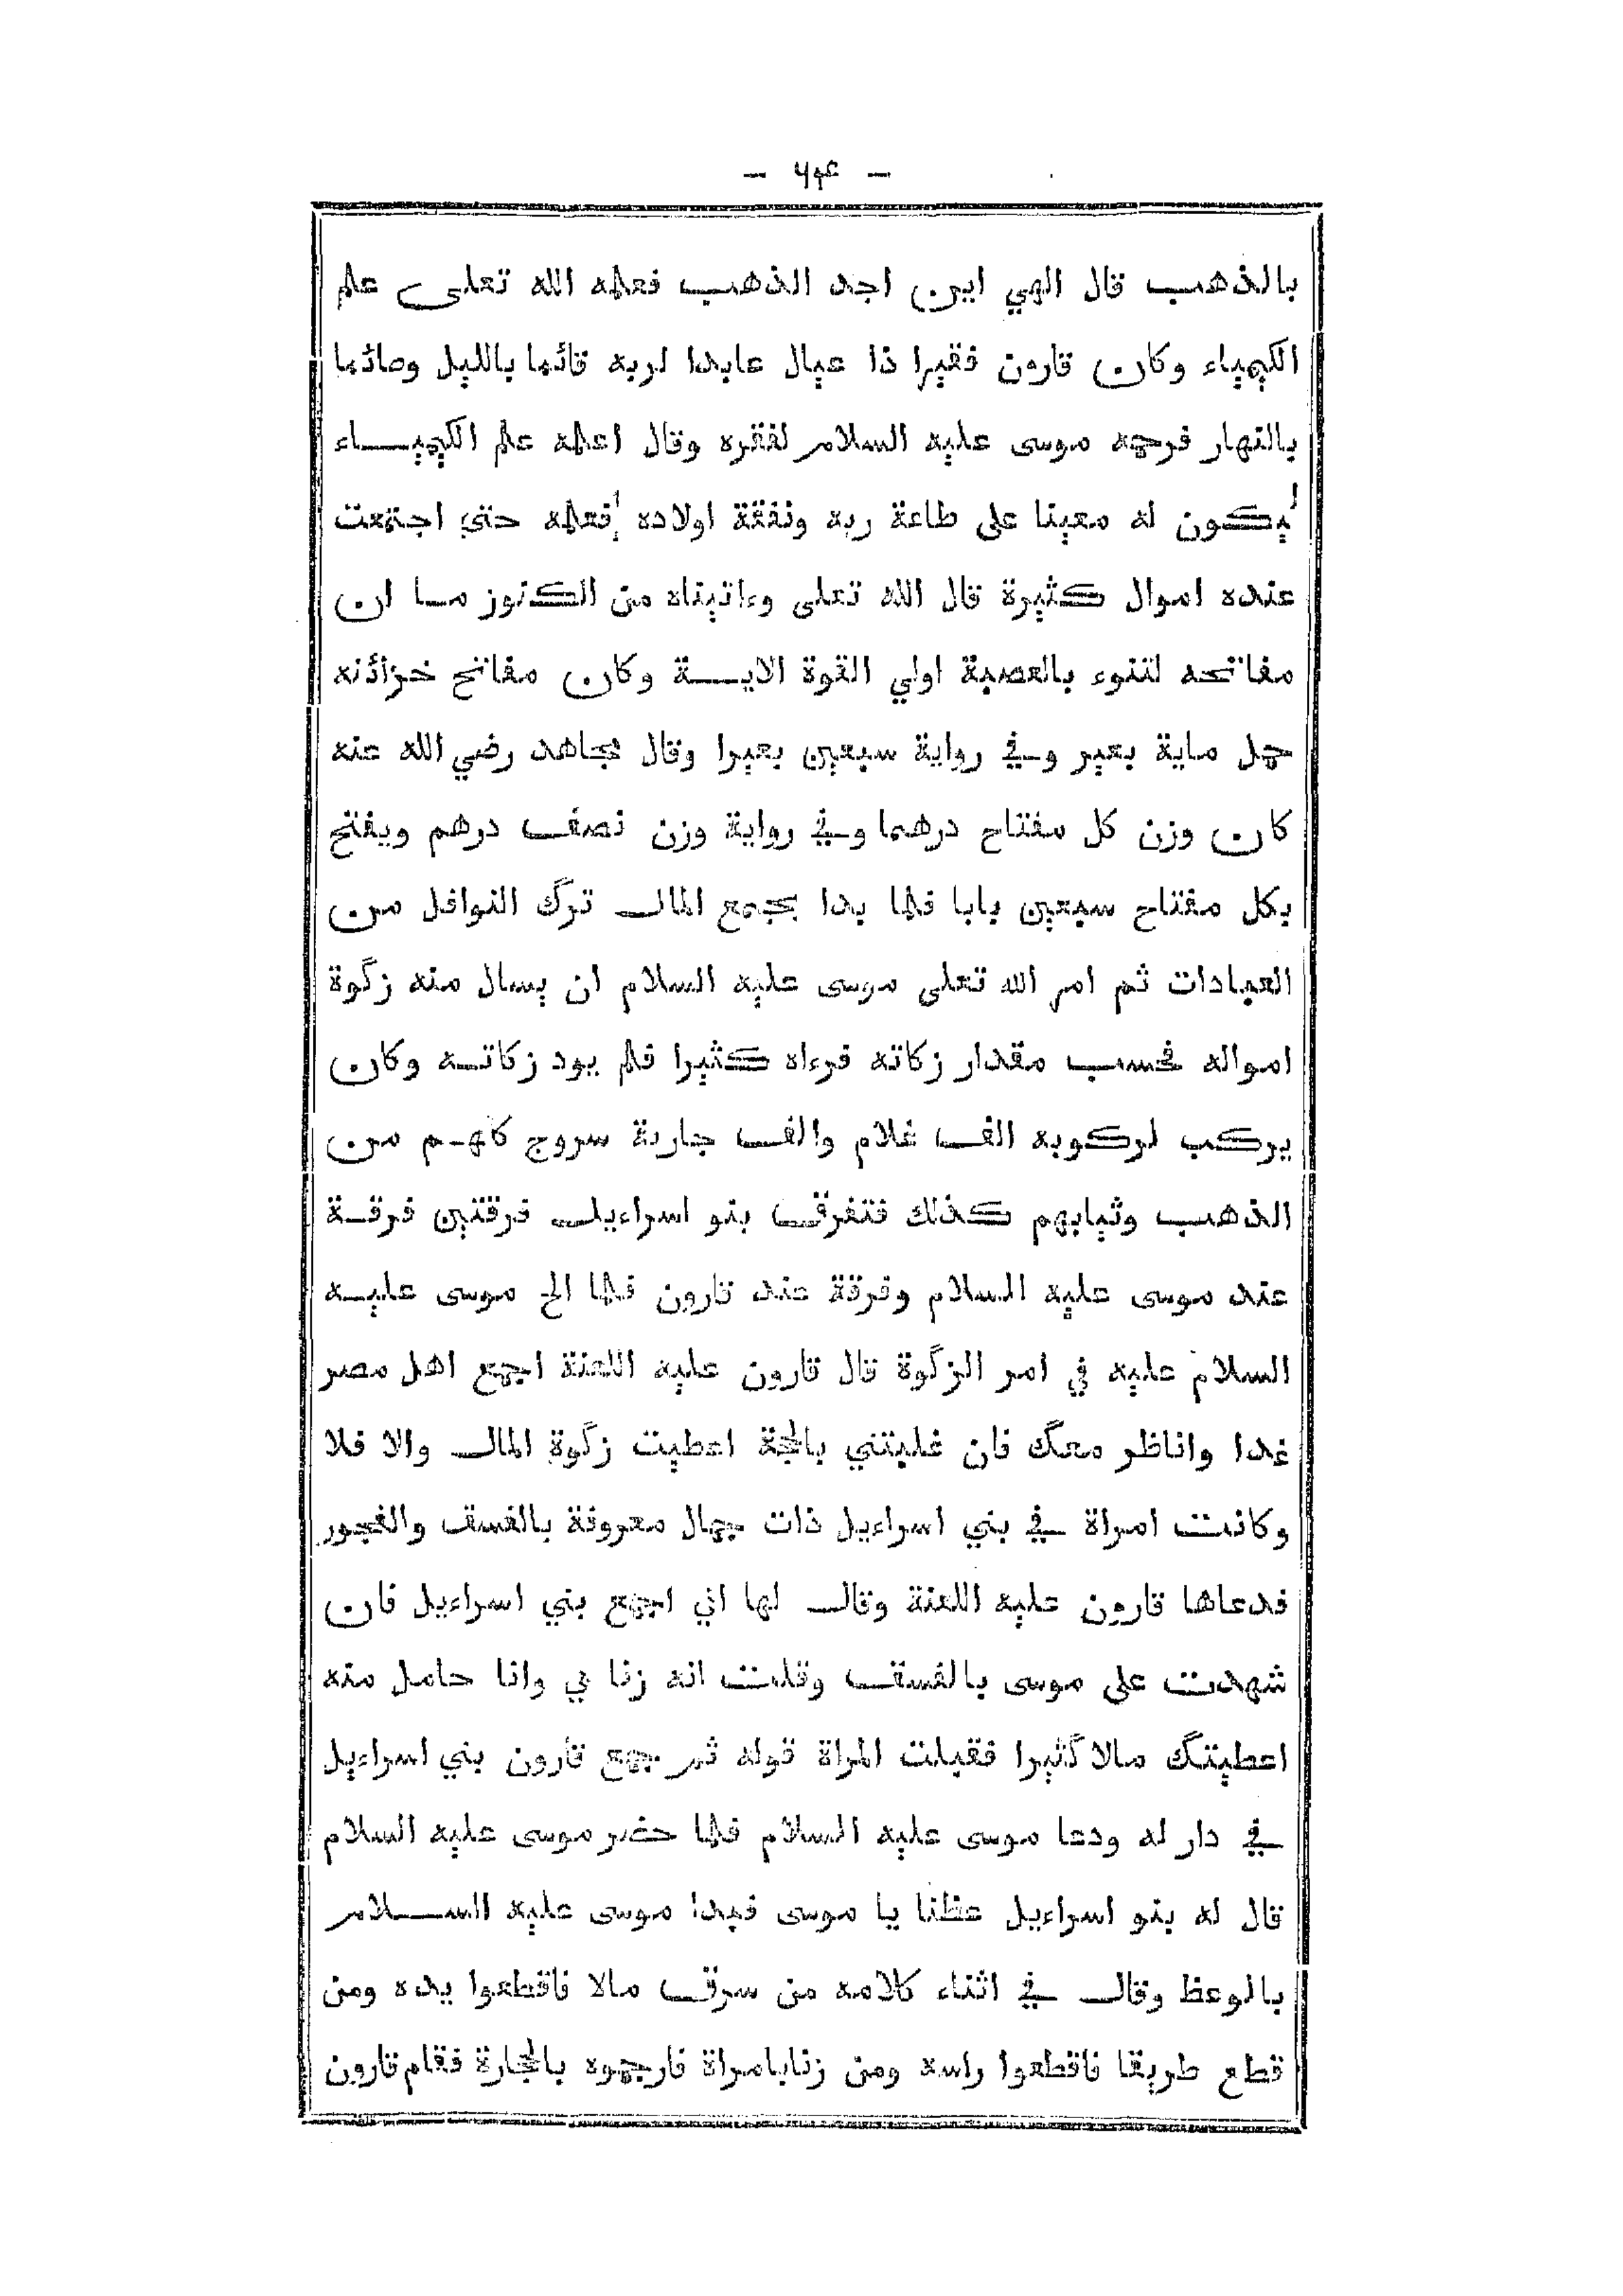 - ٦٤ -
بالذهب قال الهي اين اجد الذهب فعلمه الله تعلى علم
الكيمياء وكان قارون فقيرا ذا عيال عابدا لربه قائما بالليل وصائما
بالنهار فرحمه موسى عليه السلام لفقره وقال اعلمه علم الكيمياء
ليكون له معينا على طاعة ربه ونفقة اولاده فعلمه حتي اجتمعت
عنده اموال كثيرة قال الله تعلى وءاتيناه من الكنوز ما ان
مفاتحه لتنوء بالعصبة اولي القوة الاية وكان مفاتح خزائنه
حمل ماية بعير وفي رواية سبعين بعيرا وقال مجاهد رضي الله عنه
كان وزن كل مفتاح درهما وفي رواية وزن نصف درهم ويفتح
بكل مفتاح سبعين بابا فلما بدا بجمع المال ترك النوافل من
العبادات ثم امر الله تعلى موسى عليه السلام ان يسال منه زكوة
امواله فحسب مقدار زكاته فرءاه كثيرا فلم يود زكاته وكان
يركب لركوبه الف غلام والف جارية سروج كلهم من
الذهب وثيابهم كذلك فتفرق بنو اسراءيل فرقتين فرقة
عند موسى عليه السلام وفرقة عند قارون فلما الح موسى عليه
السلام عليه في امر الزكوة قال قارون عليه اللعنة اجمع اهل مصر
غدا واناظر معك فان غلبتني بالحجة اعطيت زكوة المال والا فلا
وكانت امراة في بني اسراءيل ذات جمال معروفة بالفسق والفجور
فدعاها قارون عليه اللعنة وقال لها اني اجمع بني اسراءيل فان
شهدت على موسى بالفسق وقلت انه زنا بي وانا حامل منه
اعطيتك مالا كثيرا فقبلت المراة قوله ثم جمع قارون بني اسراءيل
في دار له ودعا موسى عليه السلام فلما حضر موسى عليه السلام
قال له بنو اسراءيل عظنا يا موسى فبدا موسى عليه السلام
بالوعظ وقال في اثناء كلامه من سرق مالا فاقطعوا يده ومن
قطع طريقا فاقطعوا راسه ومن زنا بامراة فارجموه بالحجارة فقام قارون